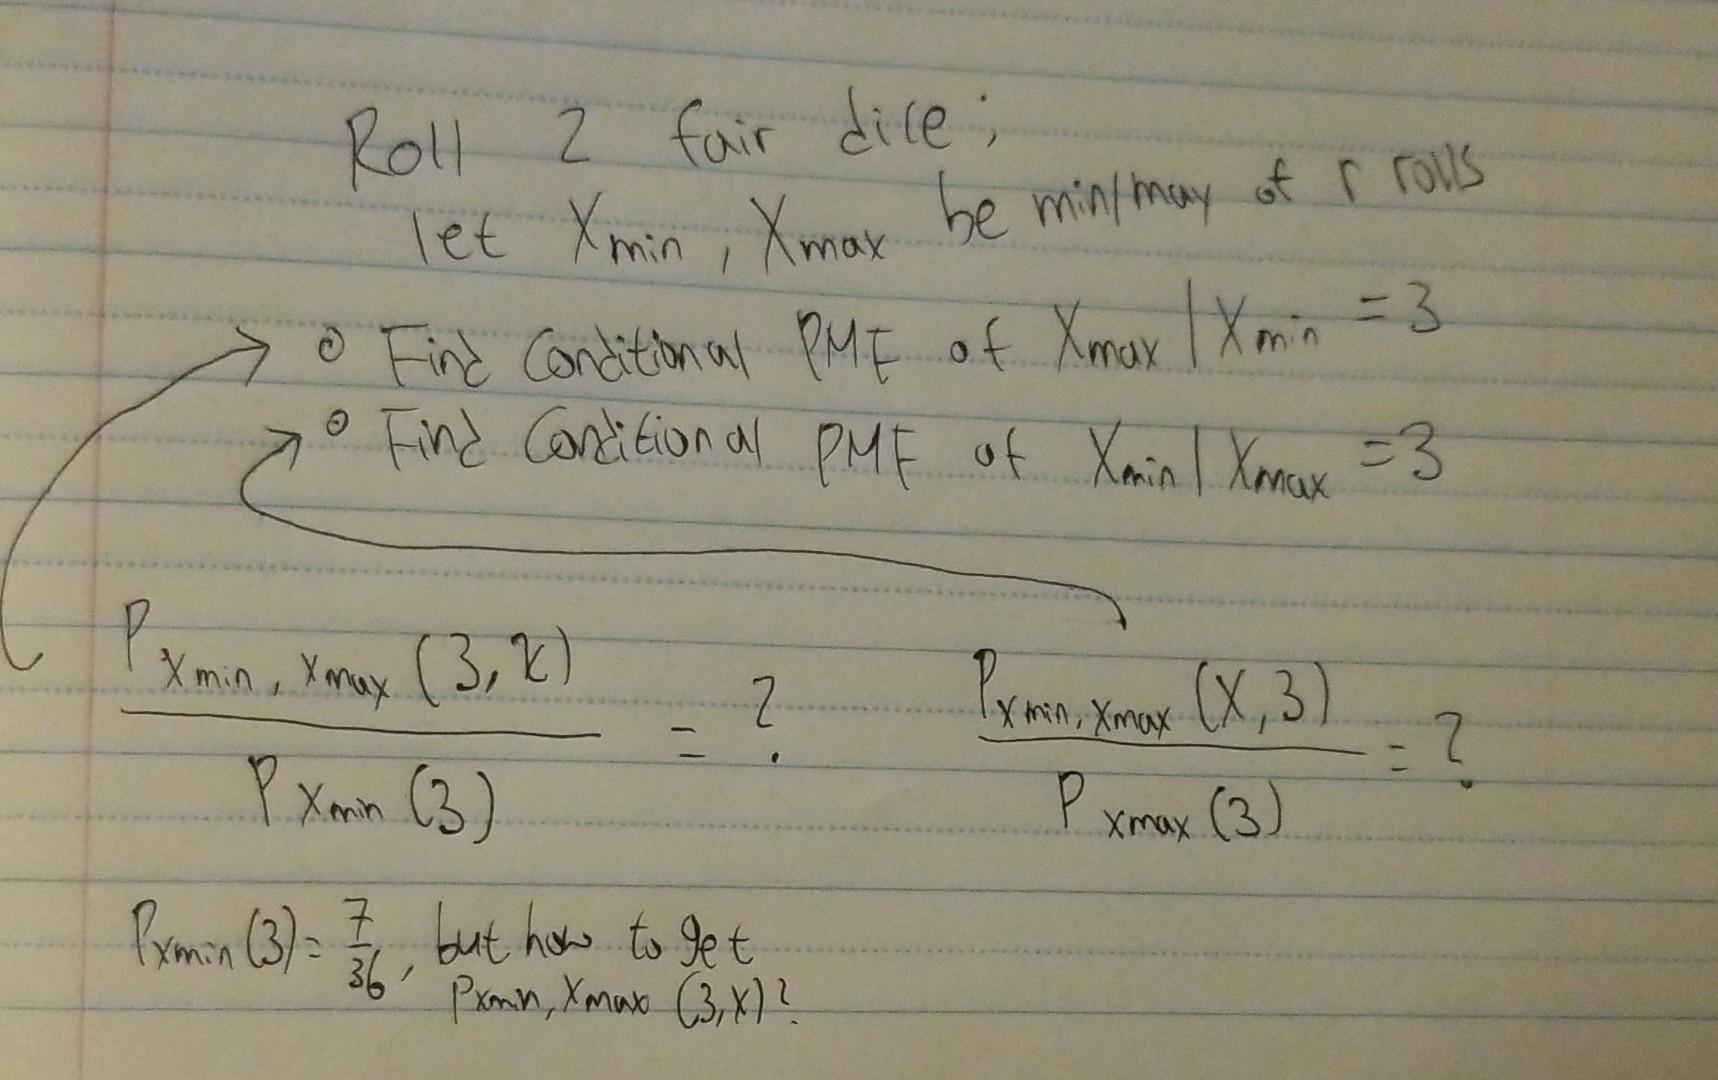 Roll 2 fair dice;
let Xmin, Xmax be min/max of r rolls
Find Conditional PMF of Xmax | Xmin = 3
Find Conditional PMF of Xmin | Xmax = 3
P Xmin, Xmax (3, x)
P Xmin (3)
= ?
P Xmin, Xmax (X, 3)
P Xmax (3)
= ?
P Xmin (3) = 7/36, but how to get
P Xmin, Xmax (3, X)?